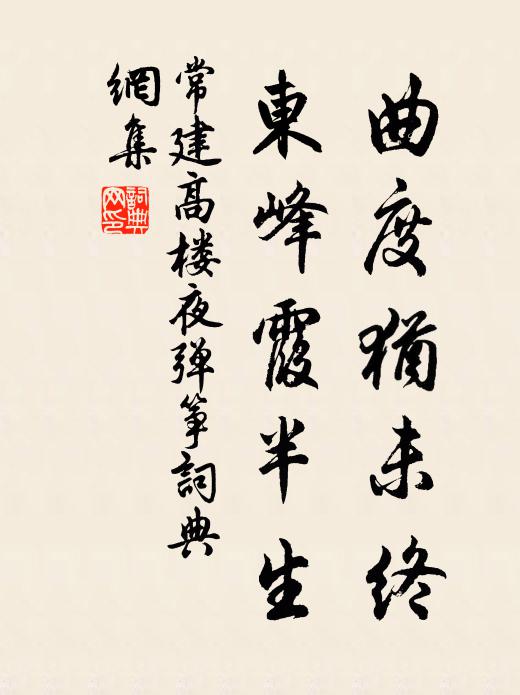 曲度猶未終
東峰霞半生
常建高楼夜弹筝詞典
網集
詞典網印